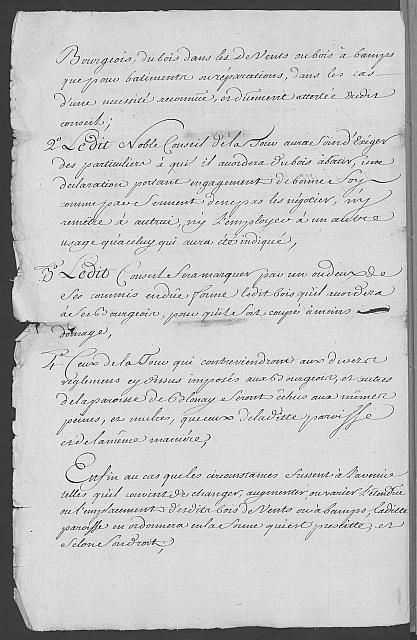 Bourgeois, du bois dans les deVents ou bois à bamps
que pour batiments ou réparations, dans les cas
d'une necessité reconnüe, et düement attestée dudit
conseil;
2º Ledit Noble Conseil de la Tour aura soin d'Exiger
des particuliers à qui il acordera du bois à batir, une
declaration portant engagement de bonne Foy
comme par Serment de ne pas les négotier, n'y
remettre à autrui, n'y l'employer à un autre
usage que celuy qui aura été indiqué,
3º Ledit Conseil Fera marquer par un ou deux de
Ses commis en düe forme ledit bois qu'il acordera
à Ses Bourgeois, pour qu'il le Soit coupé à moins
domage,
4º Ceux de la Tour qui contreviendront aux divers
réglemens cy dessus imposés aux Bourgeois, et autres
de la paroisse de Blonay Seront échus aux mêmes
peines, et multes, que ceux de laditte paroisse
et de la même maniere;
Enfin au cas que les circonstances fussent à l'avenir
telles qu'il convint de changer, augmenter ou varier l'étendüe
ou l'emplacement desdits bois deVents ou à bamps, laditte
paroisse en ordonnera en la Forme qui est prescritte, et
Selon Son droit;